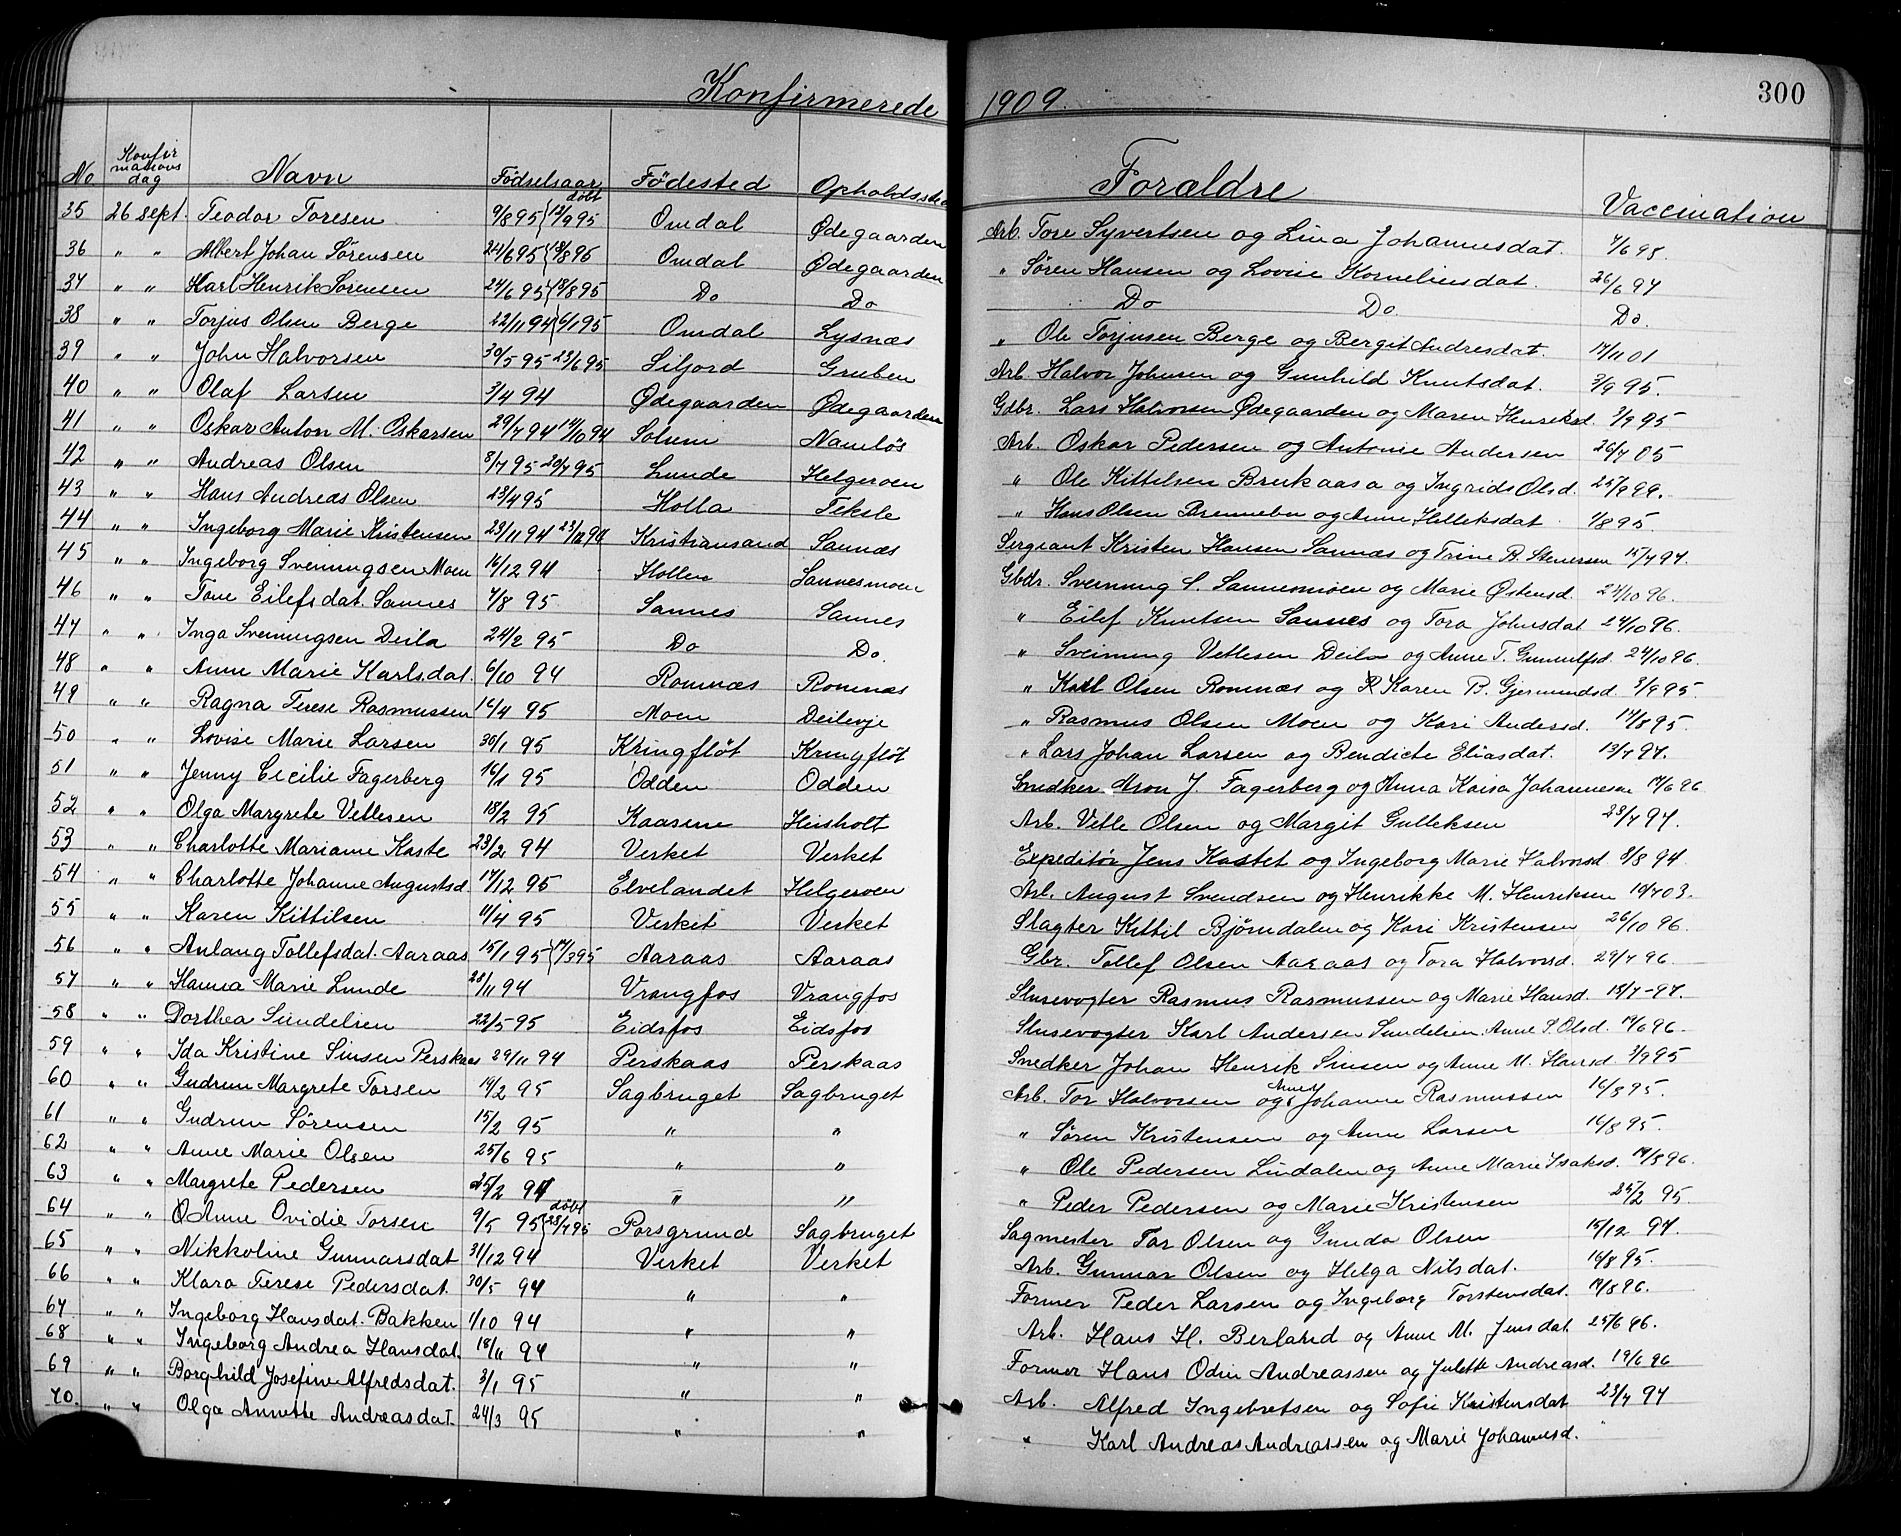 Konfirmerede 1909.
300
No Konfirmationsdag Navn Fødselsaar døbt Fødested Opholdssted Forældre Vaccination
35 26 sept. Teodor Toresen 9/8 95 { 12/9 95 Omdal Ødegaarden Arb. Tore Syvertsen og Lina Johannesdat. 7/6 98
36 " " Albert Johan Sørensen 24/6 95 { 18/8 95 Omdal Ødegaarden " Søren Hansen og Lovise Korneliusdat. 26/6 97
37 " " Karl Henrik Sørensen 24/6 95 { 18/8 95 Do Do Do Do Do.
38 " " Torjus Olsen Berge 22/11 94 { 6/1 95 Omdal Lysnæs " Ole Torjusen Berge og Bergit Andresdat. 17/11 01
39 " " John Halvorsen 30/5 95 23/6 95 Siljord Gruben Arb. Halvor Johnsen og Gunhild Knutsdat. 3/9 95.
40 " " Olaf Larsen 3/4 94 Ødegaarden Ødegaarden Gdbr. Lars Halvorsen Ødegaarden og Maren Henriksd. 3/9 95
41 " " Oskar Anton M. Oskarsen 29/7 94 14/10 94 Solum Namløs Arb. Oskar Pedersen og Antonie Andersen 26/7 05
42 " " Andreas Olsen 8/7 95 20/7 95 Lunde Helgeroen " Ole Kittelsen Brukaasa og Ingrid Olsd. 25/9 99.
43 " " Hans Andreas Olsen 23/4 95 Holla Teksle " Hans Olsen Brenneben og Anne Helleksdat. 1/8 95.
44 " " Ingeborg Marie Kristensen 23/11 94 Kristiansand Sannæs Sergeant Kristen Hansen Sannæs og Trine B. Stenersen 15/7 97.
45 " " Ingeborg Sveinungsen Moen 16/12 94 Hollen Sannesmoen Gbdr. Sveinung S. Sannesmoen og Marie Østensd. 24/10 96.
46 " " Tone Eilefsdat. Sannes 7/8 95 Sannes Sannes " Eilef Knutsen Sannes og Tora Johnsdat 24/10 96.
47 " " Inga Sveinungsen Deila 24/2 95 Do Do. " Sveinung Vetlesen Deila og Anne T. Gunnulfsd. 24/10 96.
48 " " Anne Marie Karlsdat. 6/10 94 Romnæs Romnæs " Karl Olsen Romnæs og Karen B. Gjermundsd. 3/9 95.
49 " " Ragna Terese Rasmussen 10/4 95 Moen Deilevje " Rasmus Olsen Moen og Kari Andersd. 14/8 95.
50 " " Lovise Marie Larsen 30/1 95 Kringfløt Kringfløt " Lars Johan Larsen og Bendicte Eliasdat. 13/7 97.
51 " " Jenny Cecilie Fagerberg 16/1 95 Odden Odden Snedker Aron J. Fagerberg og Anna Kaisa Johannesen 17/6 96
52 " " Olga Margrete Vetlesen 18/2 95 Kaasene Heisholt Arb. Vetle Olsen og Margit Gulleksen 23/7 97.
53 " " Charlotte Marianne Kaste 23/2 94 Verket Verket Expeditør Jens Kastet og Ingeborg Marie Halvorsd 8/8 94.
54 " " Charlotte Johanne Augustsd 17/12 95 Elvelandet Helgeroen Arb. August Svendsen og Henrikke M. Henriksen 19/7 03.
55 " " Karen Kittilsen 11/4 95 Verket Verket Slagter Kittil Bjørndalen og Kari Kristensen 26/10 96.
56 " " Anlaug Tollefsdat. Aaraas 15/1 95 { 17/3 95 Aaraas Aaraas Gbr. Tollef Olsen Aaraas og Tora Halvorsd. 29/7 96.
57 " " Hanna Marie Lunde 28/11 94 Vrangfos Vrangfos Slusevogter Rasmus Rasmussen og Marie Hansd. 15/7-97.
58 " " Dorthea Sundelien 22/5-95 Eidsfos Eidsfos Slusevogter Karl Andersen Sundelien. Anne S. Olsd. 19/6 96-
59 " " Ida Kristine Sinsen Perskaas 29/11 94 Perskaas Perskaas Snedker Johan Henrik Sinsen og Anne M. Hansd 3/9 95
60 " " Gudrun Margrete Torsen 19/2 95 Sagbruget Sagbruget Arb. Tor Halvorsen og Anne Johanne Rasmussen 16/8 95.
61 " " Gudrun Sørensen 15/2 95 " " " Søren Kristensen og Anne Larsen 16/8 95.
62 " " Anne Marie Olsen 25/6 95 " " " Ole Pedersen Lindalen og Anne Marie Isaksd. 19/8 96.
63 " " Margrete Pedersen 25/2 94 " " " Peder Pedersen og Marie Kristensen 25/2 95
64 " " Anne Ovidie Torsen 9/5 95 { døbt 28/7 95 Porsgrund Sagbruget Sagmester Tor Olsen og Gunda Olsen 15/12 97.
65 " " Nikkoline Gunnarsdat 31/12 94 Verket Verket Arb. Gunnar Olsen og Helga Nilsdat. 16/8 95.
66 " " Klara Terese Pedersdat. 30/5 94 " " Former Peder Larsen og Ingeborg Torstensdat. 17/8 96.
67 " " Ingeborg Hansdat. Bakken 1/10 94 " " Arb. Hans H. Berland og Anne M. Jensdat 25/6 96.
68 " " Ingeborg Andrea Hansdat. 18/11 94 " " Former Hans Odin Andreassen og Julette Andreasd. 19/6 96
69 " " Borghild Josefine Alfredsdat. 3/1 95 " " Arb. Alfred Ingebretsen og Sofie Kristensdat 23/7 97
70. " " Olga Annette Andreasdat. 24/3 95 " " " Karl Andreas Andreassen og Marie Johannesd.